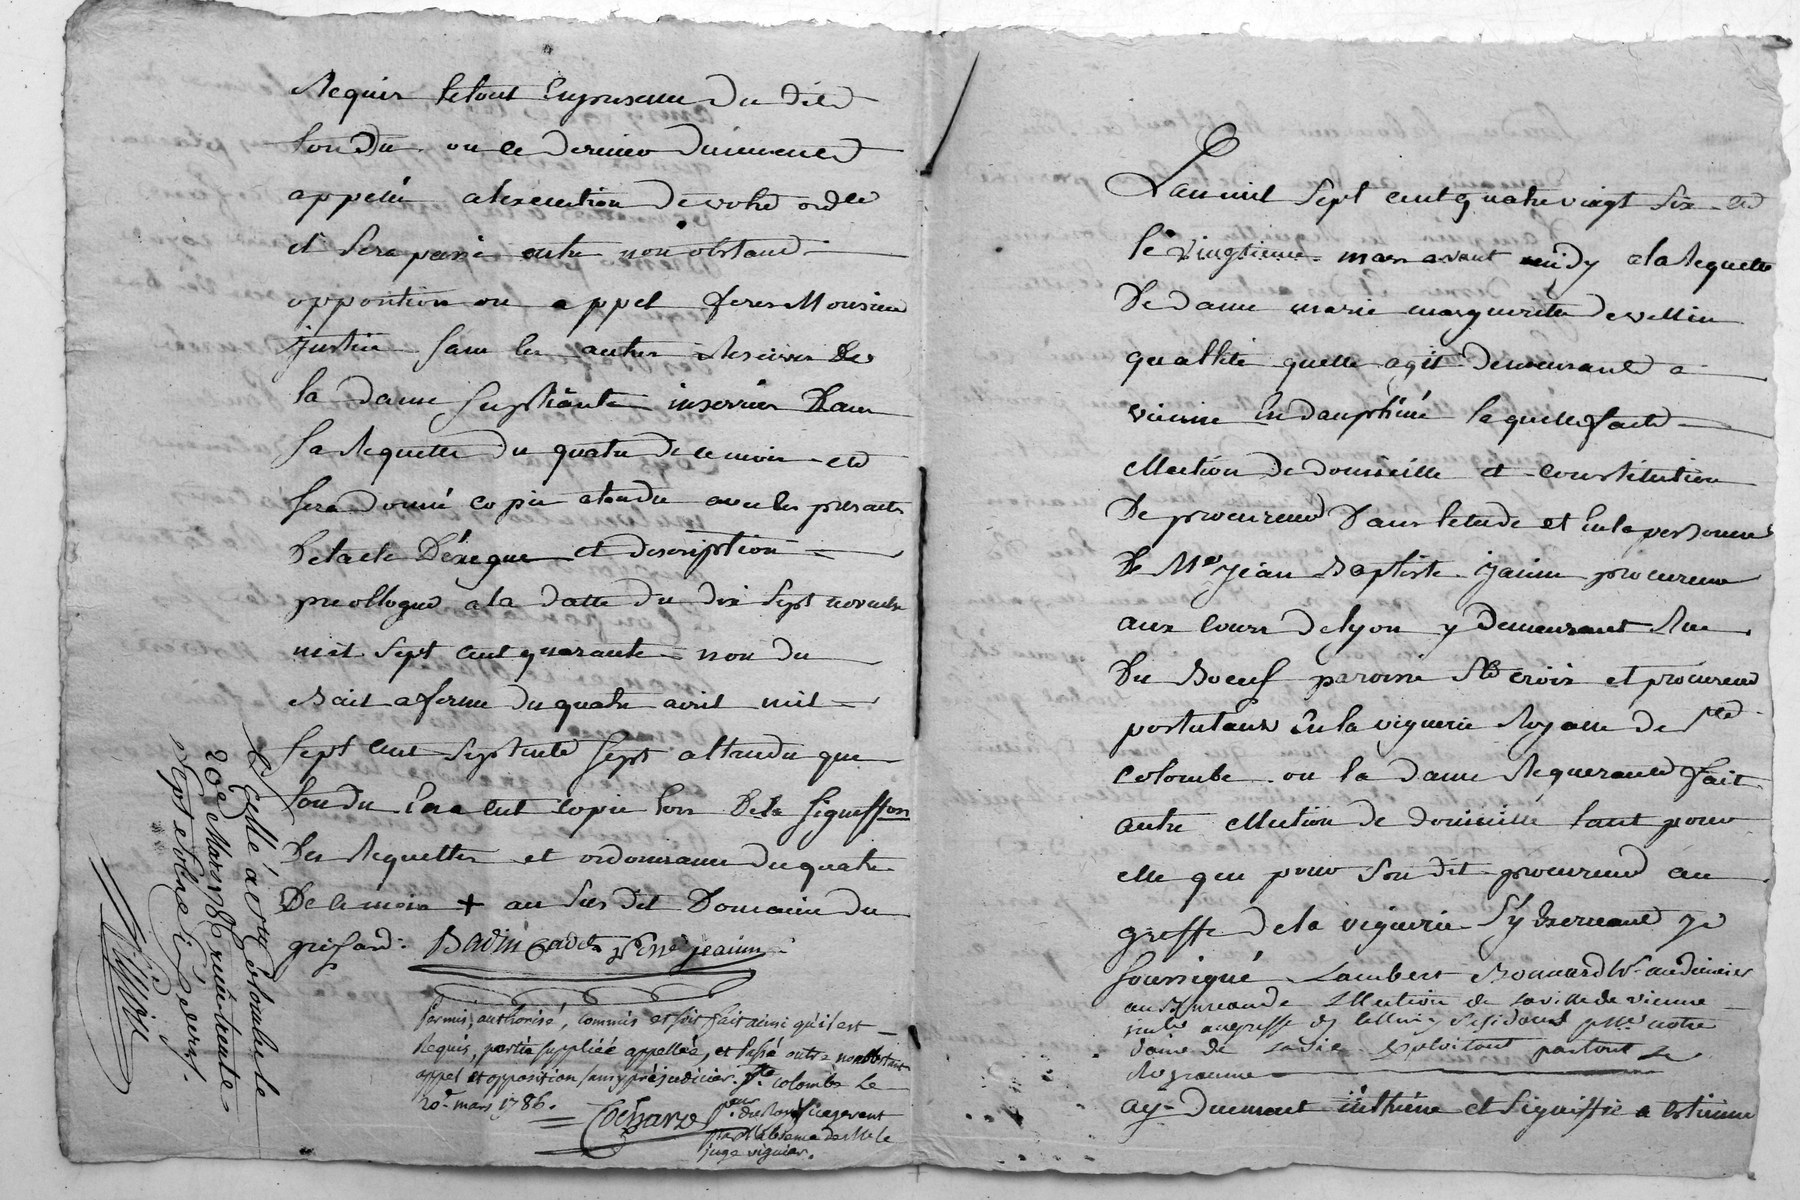 Requis letout En presence du dit
Fondu ou ce dernier duement
appellé a lexecution de votre ord.ce
et sera passé outre nonobstant
opposition ou appel feres Monsieur
justice sans les autres Reserves De
la dame supliante inserrées Dans
sa Requette du quatre de ce mois et
sera donné copie etendu avec les presentes
De lacte et description
a la datte du dix sept novembre
mil sept cent quarante non du
Bail a ferme du quatre avril mil
sept cent septante sept attendu que
fondu En a eut copie lors De la signiff.on
Des Requettes et ordonnance du quatre
De ce mois + au sus dit Domaine du
grisard. Badin Cadet Jeanin
permis, authorisé, commis et soit fait ainsi qu'il est
Requis, partie suppliéé appelléé, et passé outre nonobstant
appel et opposition sans y préjudicier. S.te colombe le
20.e mars 1786.
Cochard p.eur du Roy Vicegerent
par l'absence de M.r le
juge viguier.
Scellé a S.te Colombe le
20.e Mars 1786 reçu trente
sept sols neuf deniers.
Lan mil sept cent quatre vingt six et
le vingtieme mars avant midy a la Requette
De dame marie marguerite de vellein
quallité quelle agit demeurant a
vienne En dauphiné laquelle fait
Ellection de domicille et constitution
De procureur Dans letude et En la personne
De M.e Jean Baptiste janin procureur
aux cours de lyon y demeurant Rue
Du Boeuf paroisse S.te croix et procureur
postulant En la viguerie Royalle de S.te
Colombe ou la dame Requerante fait
autre Ellection de domicille tant pour
elle que pour son dit procureur au
greffe de la viguerie sy Bernant je
soussigné Lambert audiencier
au Bureau de Ellection de la ville de vienne
au greffe Residant p.sse notre
dame de la vie Exploitant partout le
Royaume
ay duement inthimé et signiffié a etienne